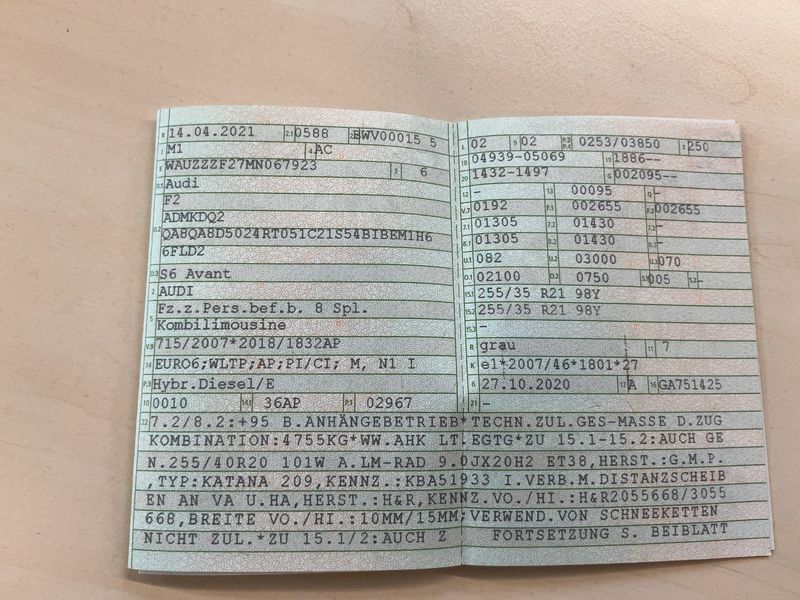 B 14.04.2021 2.1 0588 2.2 BWV00015 5
J M1 4 AC
E WAUZZZF27MN067923 3 6
D.1 Audi
F2
ADMKDQ2
D.2 QA8QA8D5024RT051C21S54BIBEM1H6
6FLD2
D.3 S6 Avant
2 AUDI
5 Fz.z.Pers.bef.b. 8 Spl.
Kombilimousine
V.9 715/2007*2018/1832AP
14 EURO6;WLTP;AP;PI/CI; M, N1 I
P.3 Hybr.Diesel/E
10 0010 14.1 36AP P.1 02967
L 02 9 02 P.2 P.4 0253/03850 T 250
18 04939-05069 19 1886--
20 1432-1497 G 002095--
12 - 13 00095 Q -
V.7 0192 F.1 002655 F.2 002655
7.1 01305 7.2 01430 7.3 -
8.1 01305 8.2 01430 8.3 -
U.1 082 U.2 03000 U.3 070
O.1 02100 O.2 0750 S.1 005 S.2 -
15.1 255/35 R21 98Y
15.2 255/35 R21 98Y
15.3 -
R grau 11 7
K e1*2007/46*1801*27
6 27.10.2020 17 A 16 GA751425
21 -
22 7.2/8.2:+95 B.ANHÄNGEBETRIEB*TECHN.ZUL.GES-MASSE D.ZUG
KOMBINATION:4755KG*WW.AHK LT.EGTG*ZU 15.1-15.2:AUCH GE
N.255/40R20 101W A.LM-RAD 9.0JX20H2 ET38,HERST.:G.M.P.
,TYP:KATANA 209,KENNZ.:KBA51933 I.VERB.M.DISTANZSCHEIB
EN AN VA U.HA,HERST.:H&R,KENNZ.VO./HI.:H&R2055668/3055
668,BREITE VO./HI.:10MM/15MM;VERWEND.VON SCHNEEKETTEN
NICHT ZUL.*ZU 15.1/2:AUCH Z FORTSETZUNG S. BEIBLATT